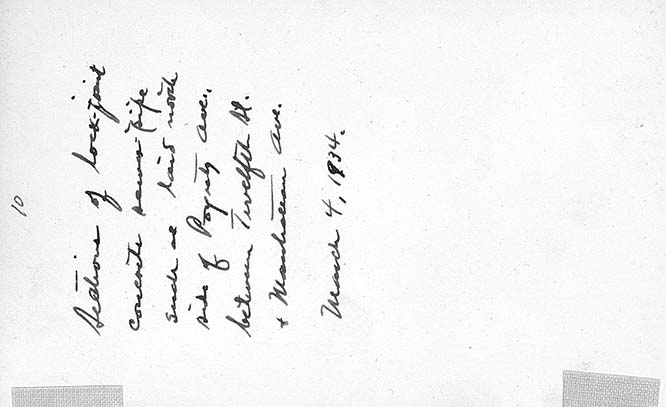 10
Sections of lock-joint
concrete sewer pipe
such as laid north
side of Payntz Ave.,
between Twelfth St.
+ Manhattan Ave.
March 4, 1934.